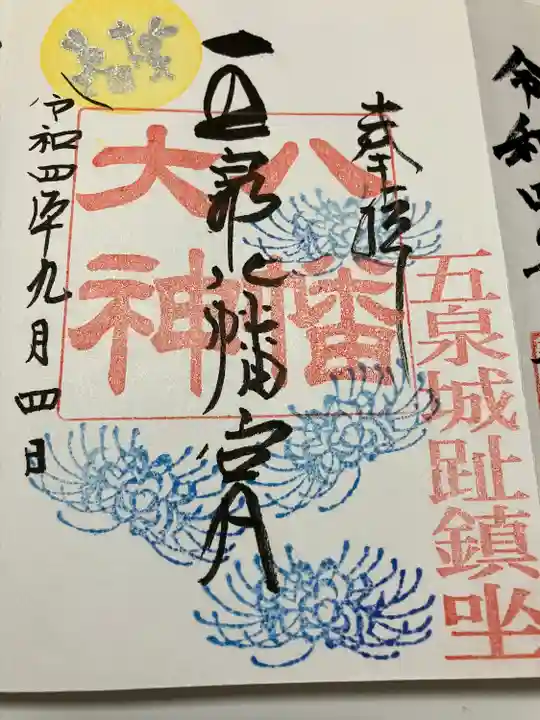 五泉城趾鎮坐
奉拝
八幡大神
五泉八幡宮
令和四年九月四日